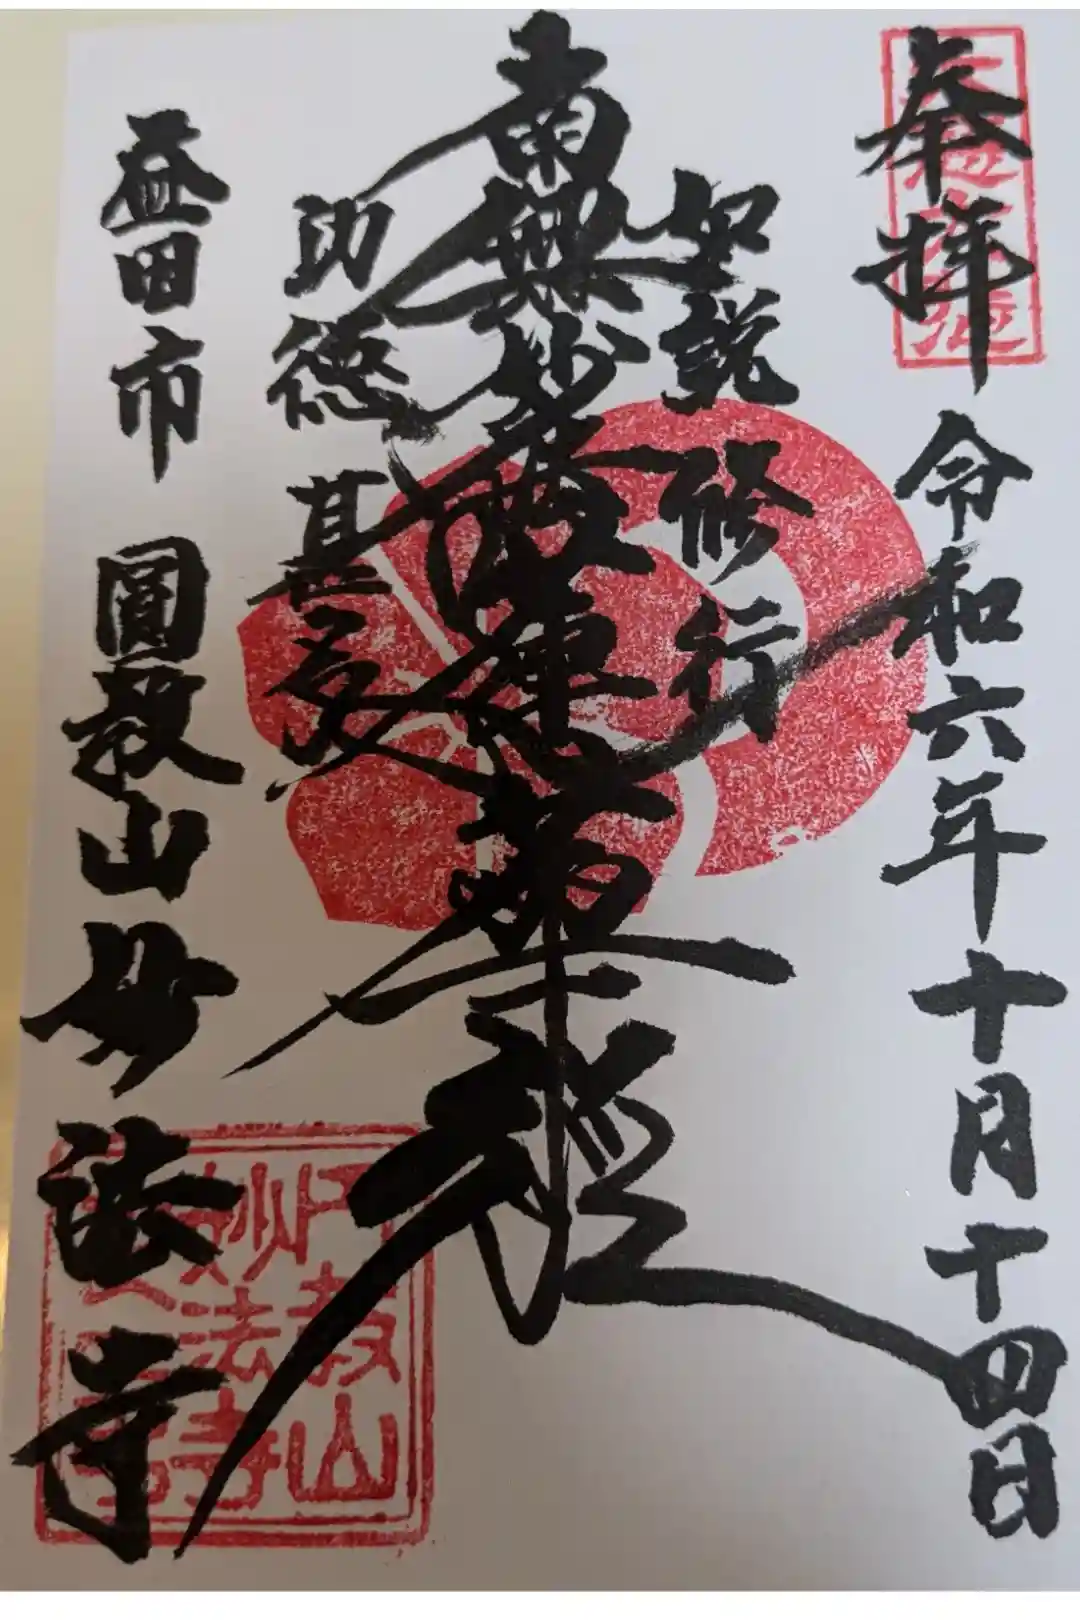 奉拝
令和六年十月十四日
如説修行
南無妙法蓮華経
功徳甚多
益田市 圓教山 妙法寺
教山
妙法寺